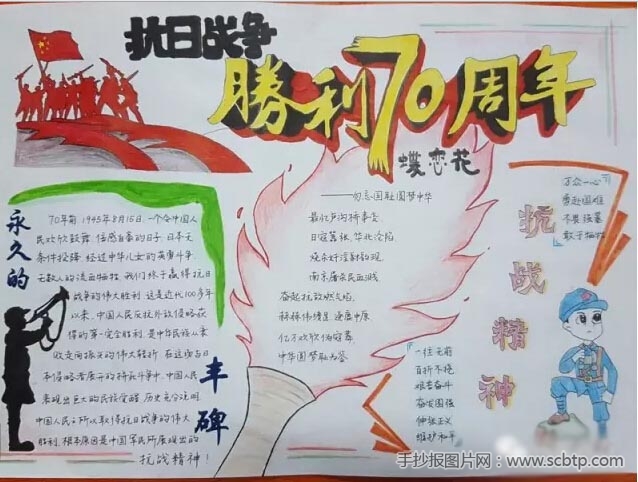 抗日战争
勝利70周年
蝶恋花
——勿忘国耻圆梦中华
最忆卢沟桥事变
日寇嚣张
华北沦陷
南京屠杀民血溅
奋起抗敌燃气焰
亿万欢歌伪寇奪
中华圆梦耻为鉴
永久的
丰碑
70年前 1945年8月15日 一个令中国人
民欢欣鼓舞 倍感自豪的日子 日本无
条件投降 经过中华儿女的英勇斗争
无数人的流血牺牲 我们终于赢得抗日
战争的伟大胜利 这是近代100多年
以来 中国人民反抗外敌侵略获
得的第一次完全胜利 是中华民族从衰
败走向振兴的伟大转折 在这场与日
本侵略者展开的殊死斗争中 中国人民
表现出巨大的民族觉醒 历史充分说明
中国人民之所以取得抗日战争的伟大
胜利 根本原因是中国军民所展现出的
抗战精神！
万众一心
勇赴国难
不畏强暴
敢于牺牲
抗战精神
一往无前
百折不挠
艰苦奋斗
奋发图强
伸张正义
维护和平
手抄报图片网：www.scbtp.com